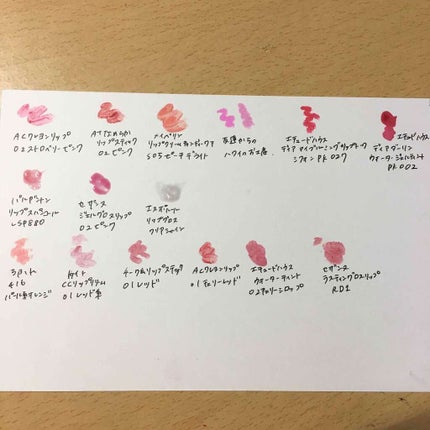 ACクレヨンリップ
02ストロベリーピンク
ATなめらか
リップスティック
02ピンク
メイベリン
リップクリーム
S05ピーチデライト
友達からの
ハワイのお土産
エチュードハウス
ディア マイブルーミングリップトーク
シフォン PK027
エチュードハウス
ディアダーリン
ウォータージェルティント
PK002
パルガントン
リップスパ
LSP880
セザンヌ
ジェルグロスリップ
02ピンク
エスポルール
リップグロス
クリアシャイン
ちふれ
416
パール系オレンジ
ケイト
CCリップクリーム
01レッド系
チーク&リップスティック
01レッド
ACクレヨンリップ
01チェリーレッド
エチュードハウス
ウォーターティント
02チェリーシロップ
セザンヌ
ラスティンググロスリップ
RD1